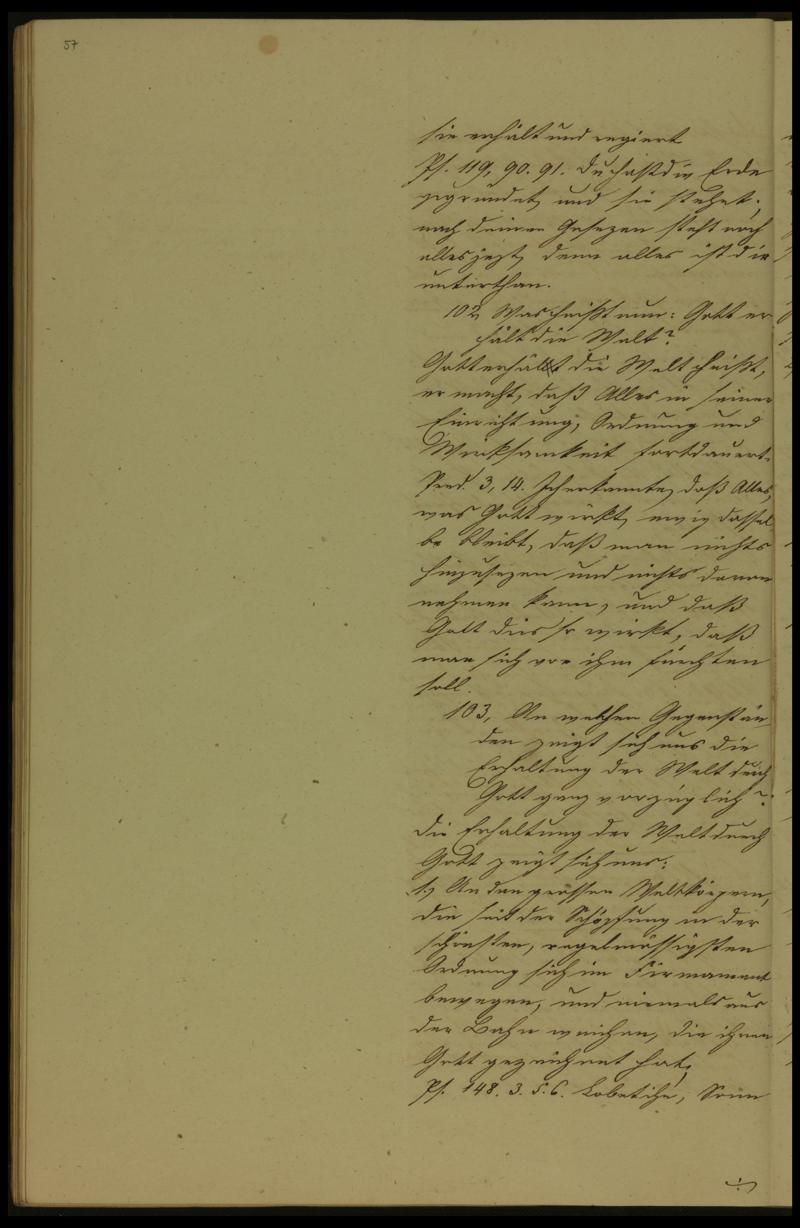 57
sie erhält und regiert
Ps. 119, 90. 91. Du hast die Erde
gegründet, und sie stehet;
nach deinen Gesezen steht noch
alles jezt, denn alles ist dir
unterthan.
102, Was heißt nun: Gott er
hält die Welt?
Gott erhält die Welt heißt,
er macht, daß Alles in seiner
Einrichtung, Ordnung und
Wirksamkeit fortdauert.
Pred. 3, 14. Ich erkannte, daß Alles,
was Gott wirkt, ewig dassel
be bleibt, daß man nichts
hinzusezen und nichts davon
nehmen kann, und daß
Gott dies so wirkt, daß
man sich vor ihm fürchten
soll.
103, An welchen Gegenstän
den zeigt sich uns die
Erhaltung der Welt durch
Gott ganz vorzüglich?
Die Erhaltung der Welt durch
Gott zeigt sich uns:
1.) An den grossen Weltkörpern,
die seit der Schöpfung in der
schönsten, regelmässigsten
Ordnung sich im Firmament
bewegen, und niemals aus
der Bahn weichen, die ihnen
Gott gezeichnet hat,
Ps. 148. 3. 5. 6. Lobet ihn, Sonn